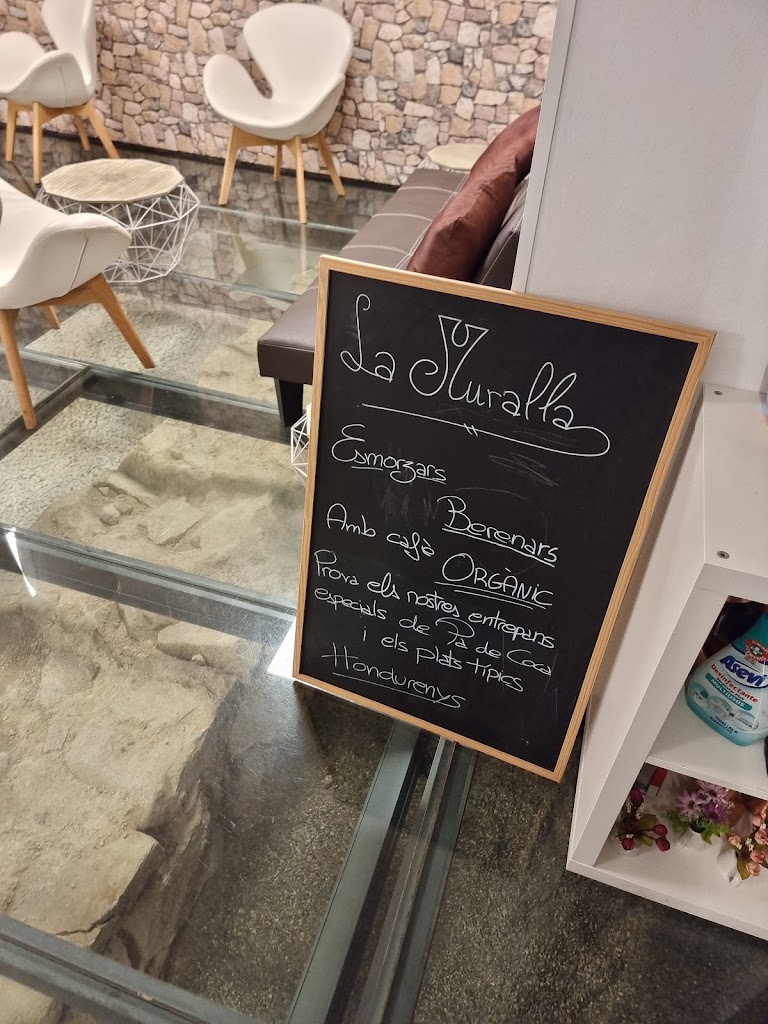 La Muralla
Esmorzars
Berenars
Amb cafè
ORGÀNIC
Prova els nostres entrepans
especials de Pa de Coca
i els plats típics
Hondurenys
Asevi
Desinfectante